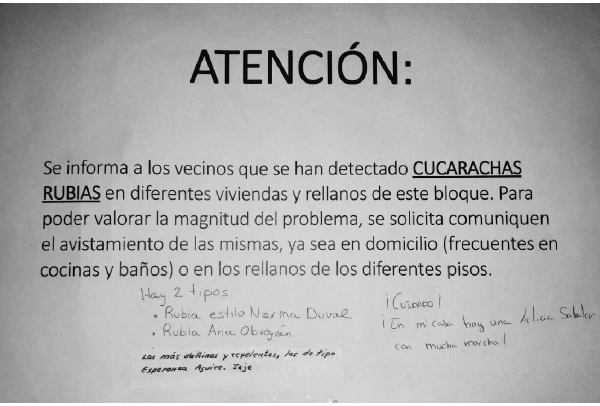 ATENCIÓN:
Se informa a los vecinos que se han detectado CUCARACHAS
RUBIAS en diferentes viviendas y rellanos de este bloque. Para
poder valorar la magnitud del problema, se solicita comuniquen
el avistamiento de las mismas, ya sea en domicilio (frecuentes en
cocinas y baños) o en los rellanos de los diferentes pisos.
Hay 2 tipos.
• Rubia estilo Norma Duval
• Rubia Ana Obregón
Las más dañinas y repelentes, las de tipo
Esperanza Aguirre. Jeje
¡CUIDADO!
¡En mi casa hay una Leticia Sabater
con mucha marcha!